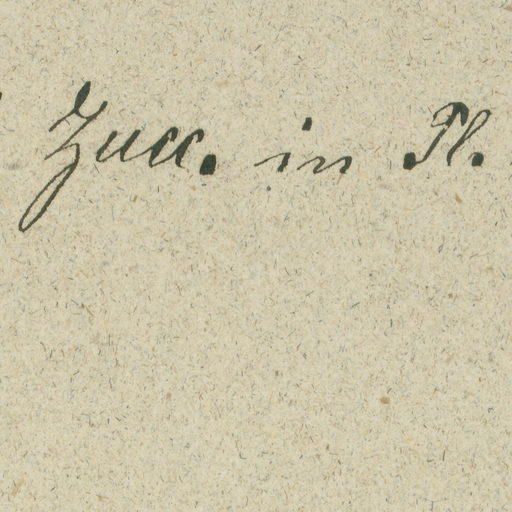 Zucc. in Pl.